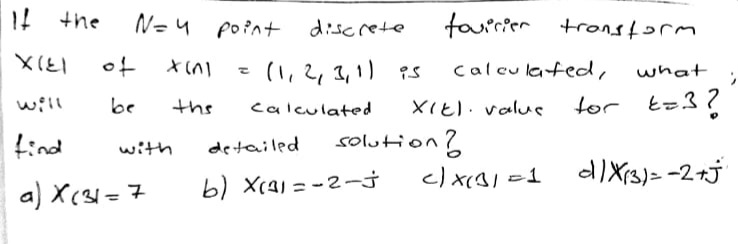 If the N=4 point discrete fourier transform
X(k) of x(n) = (1, 2, 3, 1) is calculated, what
will be the calculated X(k). value for k=3?
find with detailed solution?
a) X(3)=7 b) X(3)=-2-j c) X(3)=1 d) X(3)=-2+j